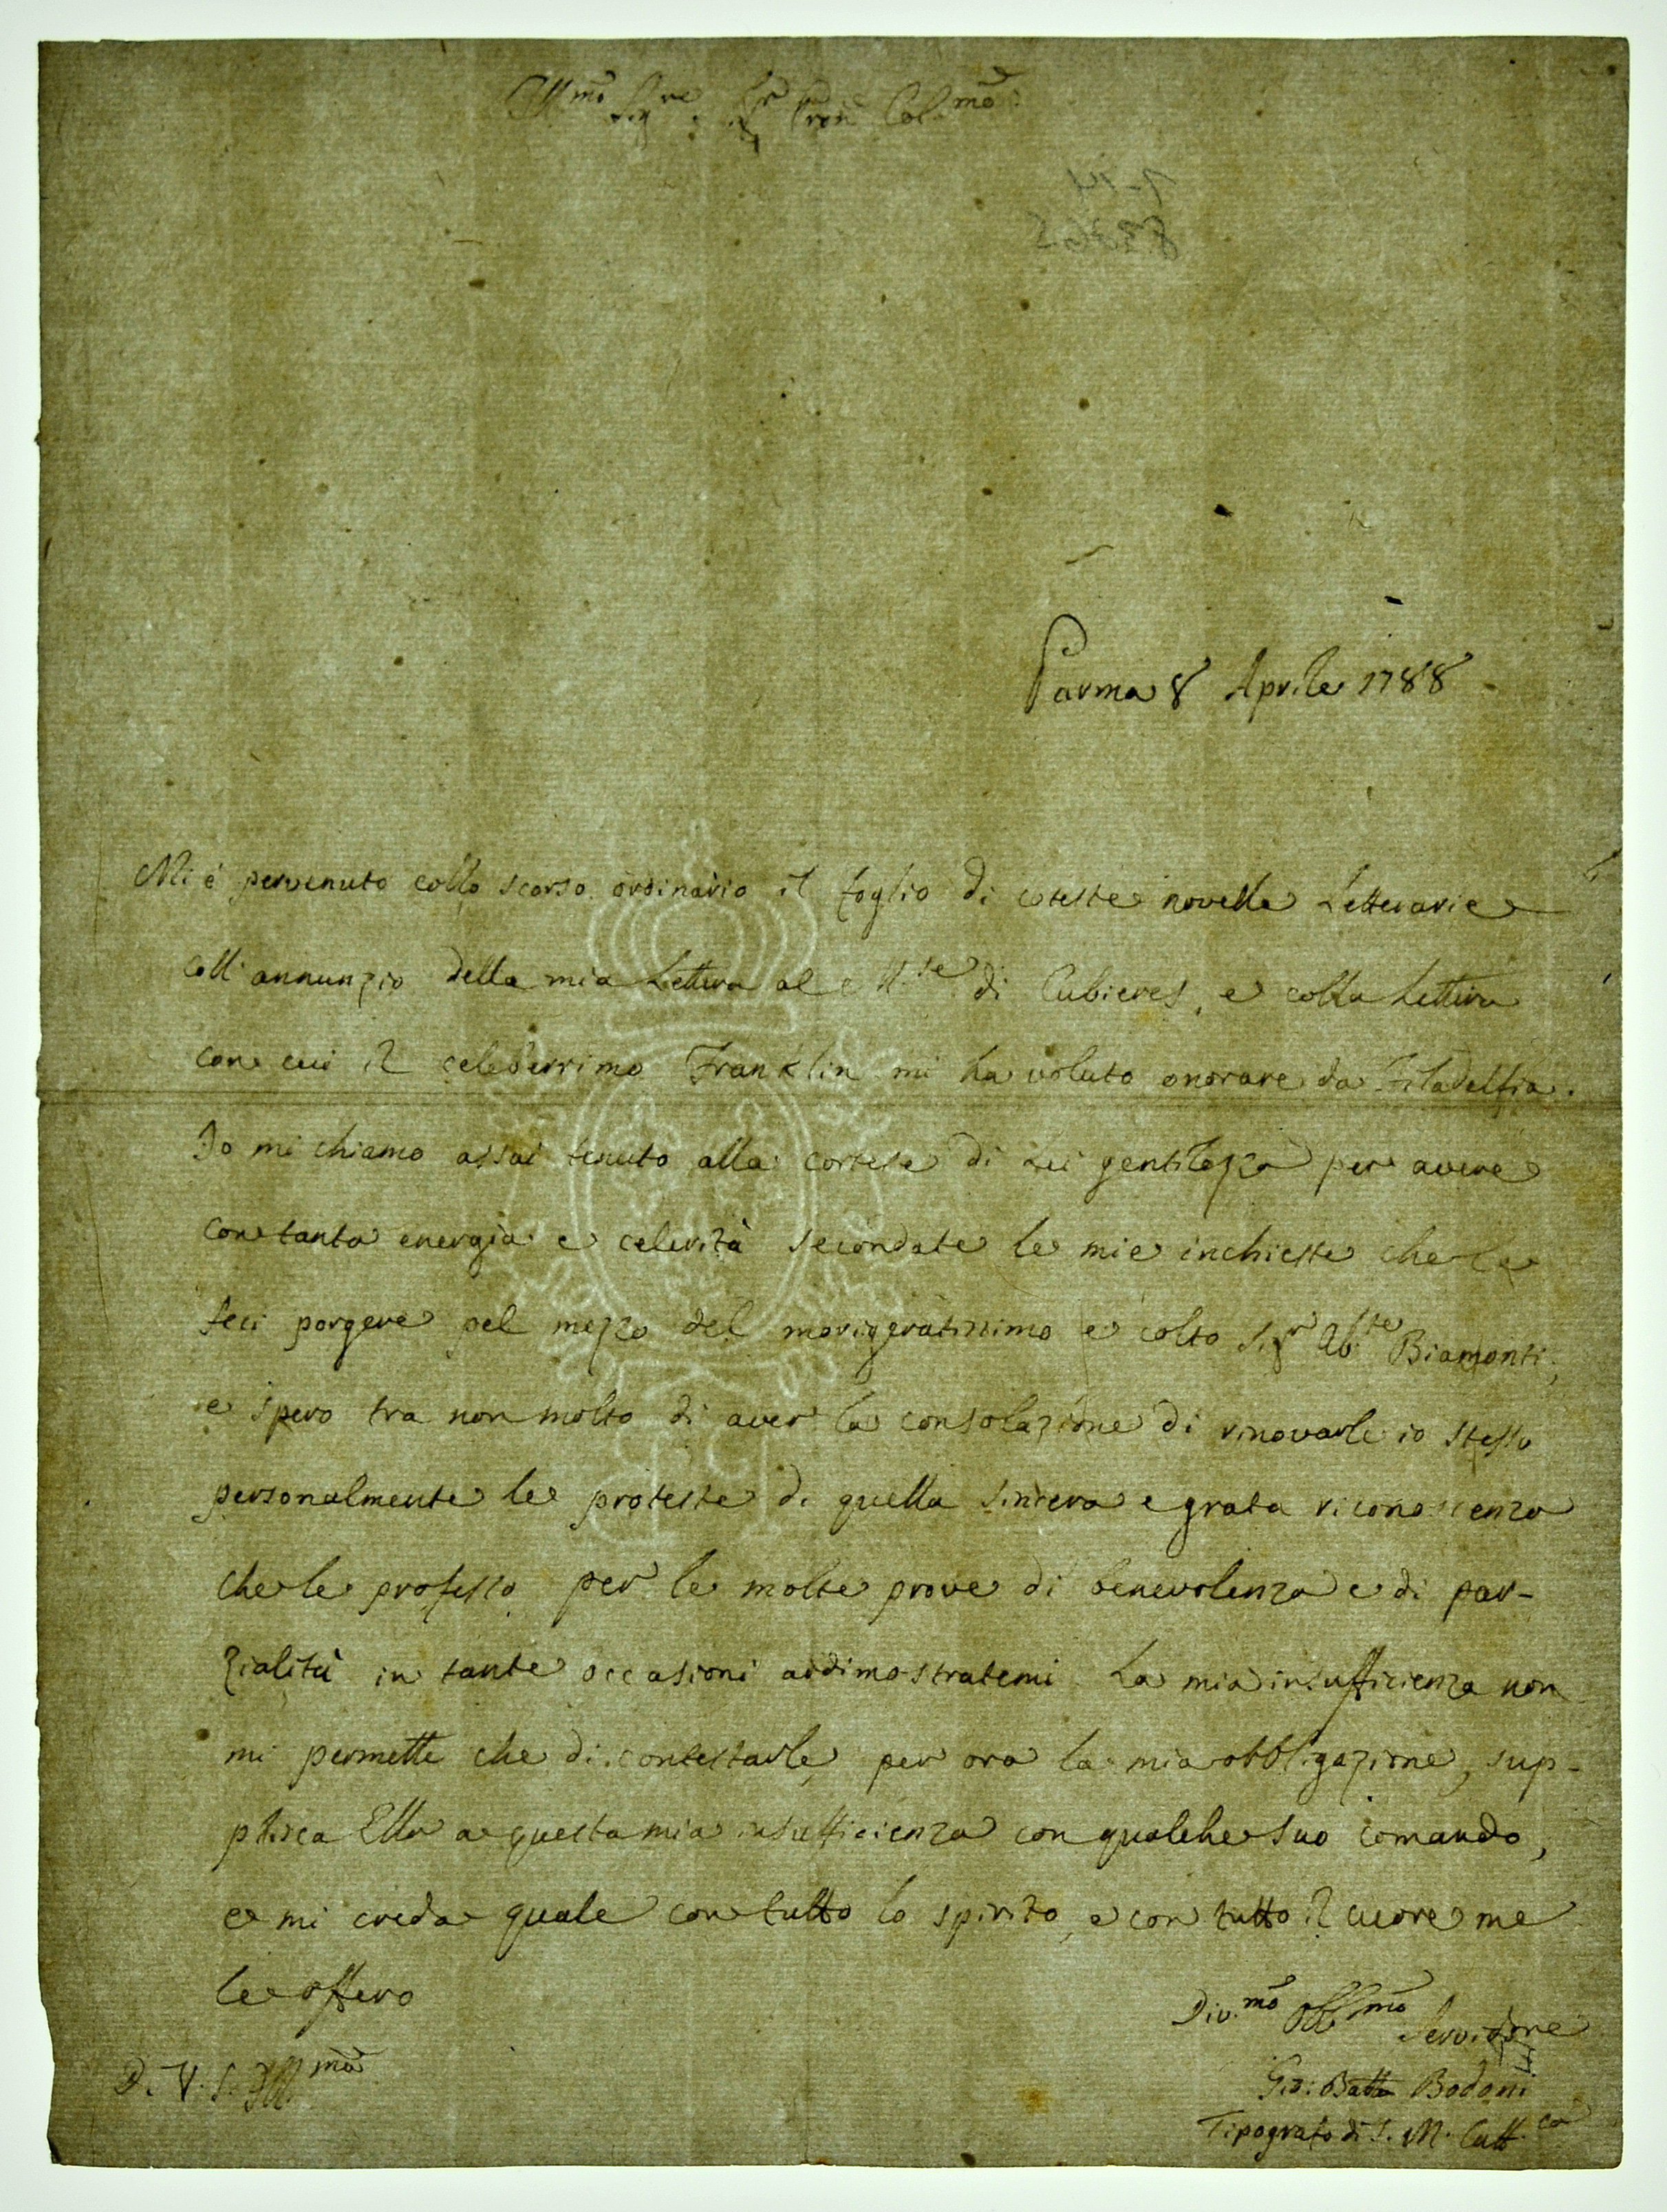 Ill.mo Sig.re Sig.r Pron Col.mo
Parma 8 Aprile 1788
Mi è pervenuto collo scorso ordinario il foglio di coteste novelle Letterarie
coll'annunzio della mia Lettera al M.se di Cubieres, e colla Lettera
con cui il celeberrimo Franklin mi ha voluto onorare da Filadelfia.
Io mi chiamo assai tenuto alla cortese di Lei gentilezza per avere
con tanta energia e celerità secondate le mie inchieste che le
feci porgere pel mezzo del morigeratissimo e colto Sig.r Ab.te Biamonti,
e spero tra non molto di aver la consolazione di rinovarle io stesso
personalmente le proteste di quella sincera e grata riconoscenza
che le professo per le molte prove di benevolenza e di par-
zialità in tante occasioni addimostratemi. La mia insufficienza non
mi permette che di contestarle per ora la mia obbligazione, sup-
plisca Ella a questa mia insufficienza con qualche suo comando,
e mi creda quale con tutto lo spirito, e con tutto il cuore me
le offero
D. V. S. Ill.ma
Div.mo Obb.mo Servidore
Gio: Batta Bodoni
Tipografo di S. M. Catt.ca